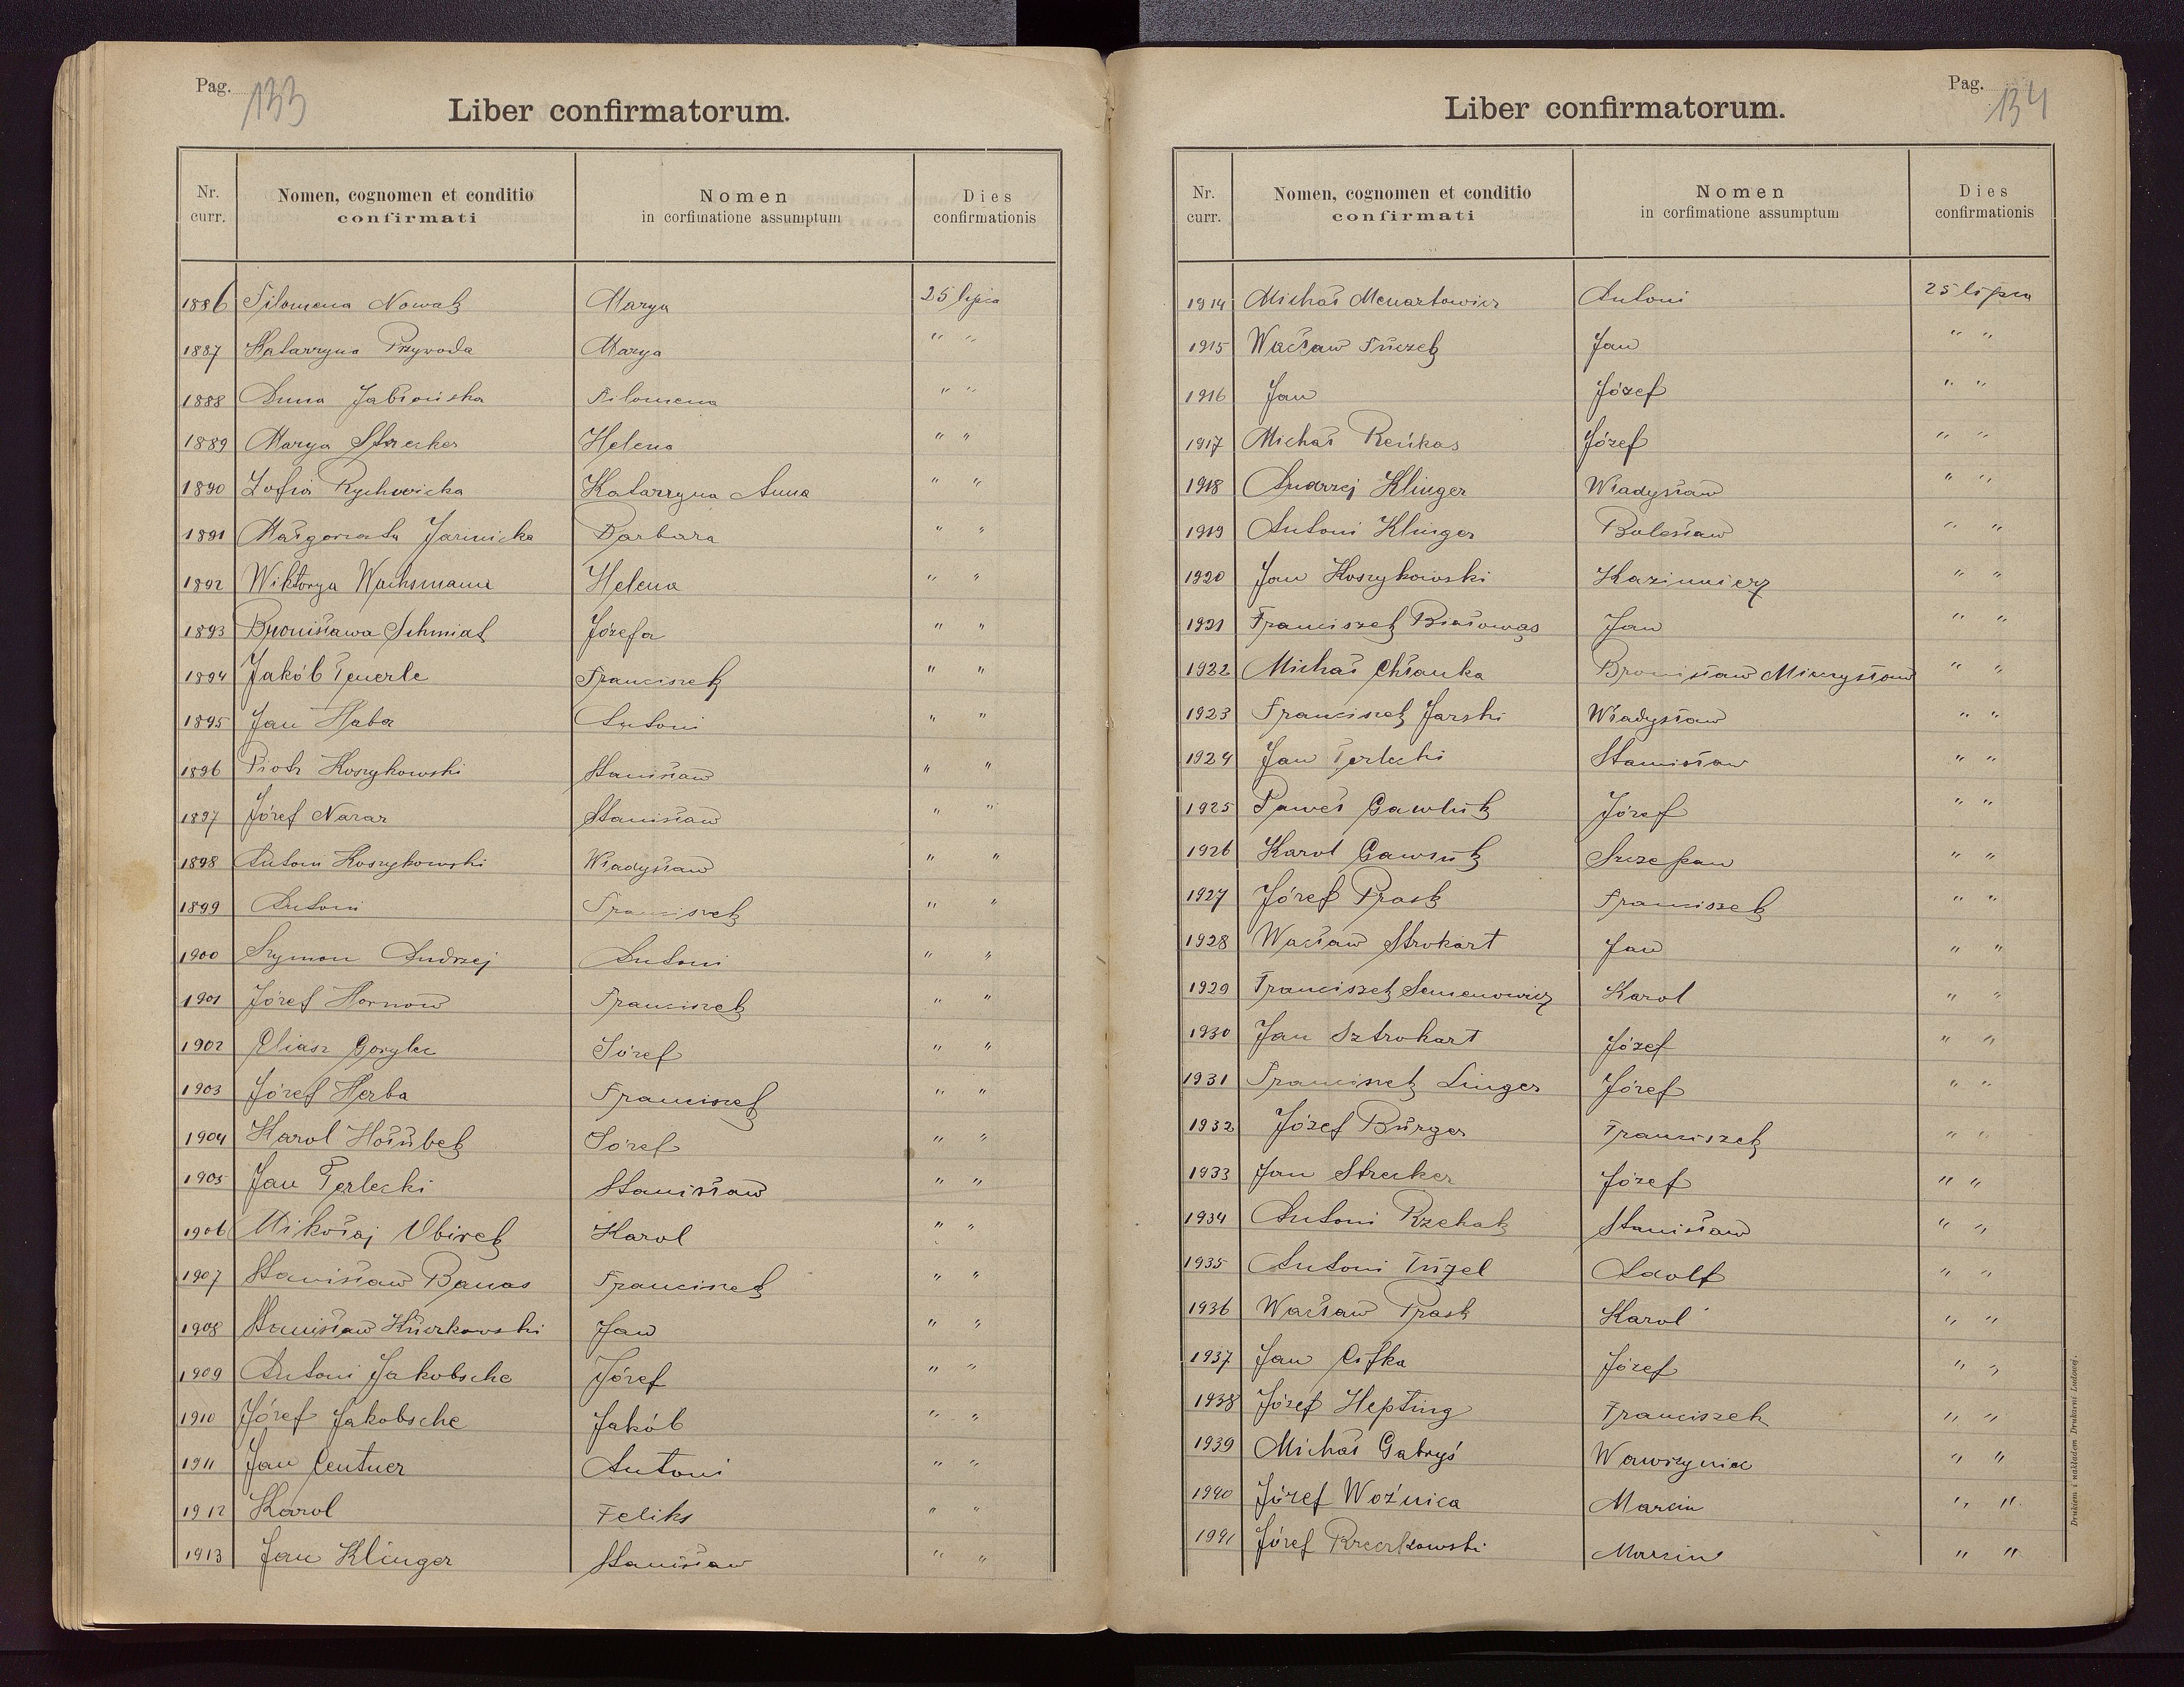 Pag. 133
Liber confirmatorum.
Nr. curr. Nomen, cognomen et conditio confirmati Nomen in corfimatione assumptum Dies confirmationis
1886 Filomena Nowak Marya 25 lipca
1887 Katarzyna Przywoda Marya " "
1888 Anna Jabłońska Filomena " "
1889 Marya Strecker Helena " "
1890 Zofia Rychwicka Katarzyna Anna " "
1891 Małgorzata Jarinicka Barbara " "
1892 Wiktorya Wachsmann Helena " "
1893 Bronisława Schmidt Józefa " "
1894 Jakób Teuerle Franciszek " "
1895 Jan Haba Antoni " "
1896 Piotr Koszykowski Stanisław " "
1897 Józef Narar Stanisław " "
1898 Antoni Koszykowski Władysław " "
1899 Antoni Franciszek " "
1900 Szymon Andrzej Antoni " "
1901 Józef Hornow Franciszek " "
1902 Eliasz Gorylec Józef " "
1903 Józef Herba Franciszek " "
1904 Karol Hołubek Józef " "
1905 Jan Terlecki Stanisław " "
1906 Mikołaj Ubirek Karol " "
1907 Stanisław Banas Franciszek " "
1908 Stanisław Jan " "
1909 Antoni Jakobsche Józef " "
1910 Józef Jakobsche Jakób " "
1911 Jan Centner Antoni " "
1912 Karol Feliks " "
1913 Jan Klinger Stanisław " "
Pag. 134
Liber confirmatorum.
Nr. curr. Nomen, cognomen et conditio confirmati Nomen in corfimatione assumptum Dies confirmationis
1914 Michał Menartowicz Antoni 25 lipca
1915 Wacław Fuczek Jan " "
1916 Jan Józef " "
1917 Michał Reukas Józef " "
1918 Andrzej Klinger Władysław " "
1919 Antoni Klinger Bolesław " "
1920 Jan Koszykowski Kazimierz " "
1921 Franciszek Białowąs Jan " "
1922 Michał Chłanka Bronisław Mieczysław " "
1923 Franciszek Jarski Władysław " "
1924 Jan Terlecki Stanisław " "
1925 Paweł Gawluk Józef " "
1926 Karol Gawluk Szczepan " "
1927 Józef Prask Franciszek " "
1928 Wacław Strokart Jan " "
1929 Franciszek Semenowicz Karol " "
1930 Jan Sztrokart Józef " "
1931 Franciszek Linger Józef " "
1932 Józef Burger Franciszek " "
1933 Jan Strecker Józef " "
1934 Antoni Rzehak Stanisław " "
1935 Antoni Tugel Adolf " "
1936 Wacław Prask Karol " "
1937 Jan Cifka Józef " "
1938 Józef Hepting Franciszek " "
1939 Michał Gabryś Wawrzyniec " "
1940 Józef Woźnica Marcin " "
1941 Józef Rzeczkowski Marcin " "
Drukiem i nakładem Drukarni Ludowej.